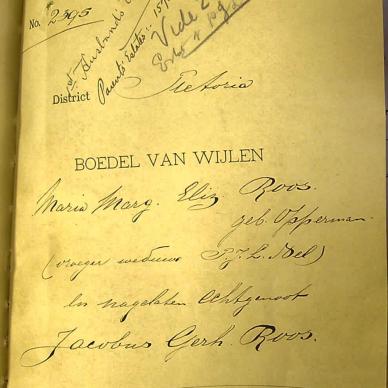 No. 2395
Husbands
Parents Estates
Vide
District Pretoria
BOEDEL VAN WIJLEN
Maria Marg. Eliz Roos.
geb. Opperman.
(vroeger weduwe P.J.L. Nel)
en nagelaten Echtgenoot
Jacobus Gerh. Roos.